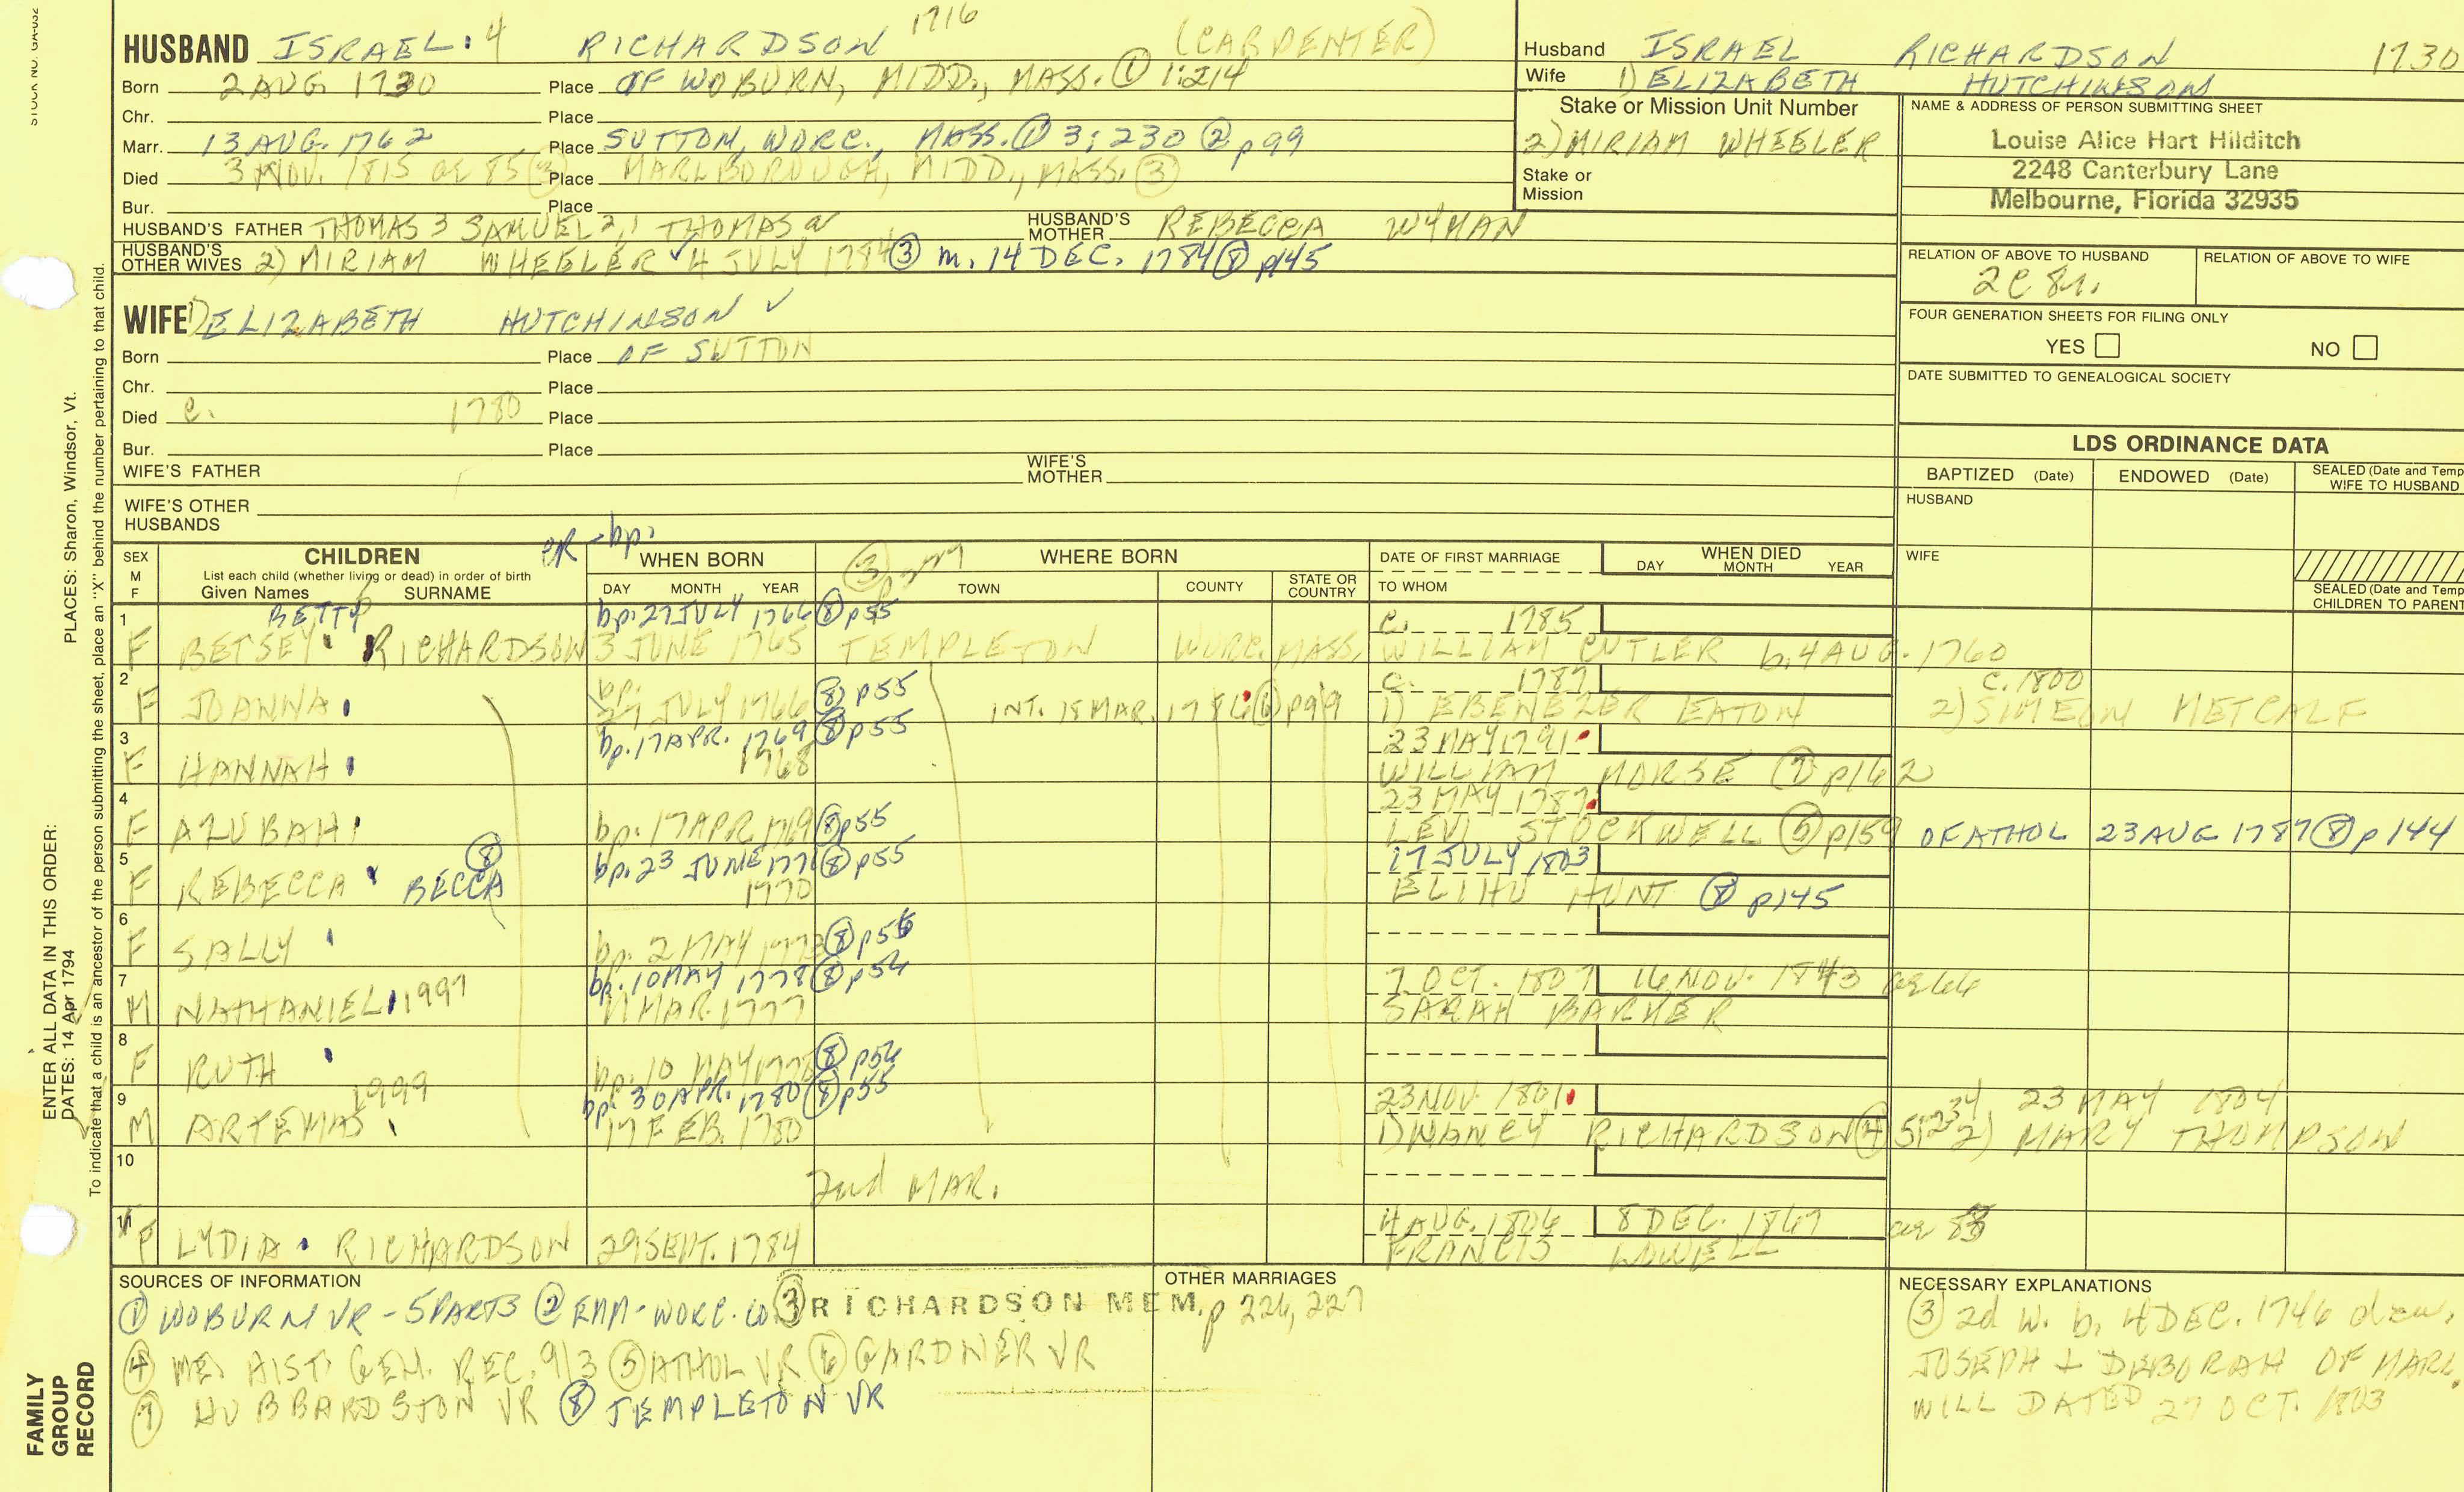 STOCK NO. GA-032
HUSBAND ISRAEL 4 RICHARDSON 1716 (CARPENTER)
Born 2 AUG 1730 Place OF WOBURN, MIDD., MASS. ① 1:214
Chr. Place
Marr. 13 AUG. 1762 Place SUTTON, WORC., MASS. ① 3:230 ② p99
Died 3 NOV. 1815 ae 85 ③ Place MARLBOROUGH, MIDD., MASS. ③
Bur. Place
HUSBAND'S FATHER THOMAS 3 SAMUEL 2, 1 THOMAS HUSBAND'S MOTHER REBECCA WYMAN
HUSBAND'S OTHER WIVES 2) MIRIAM WHEELER ✓ 4 JULY 1784 ③ m. 14 DEC. 1784 ⑧ p145
WIFE 1) ELIZABETH HUTCHINSON ✓
Born Place OF SUTTON
Chr. Place
Died c. 1780 Place
Bur. Place
WIFE'S FATHER WIFE'S MOTHER
WIFE'S OTHER HUSBANDS
Husband ISRAEL RICHARDSON 1730
Wife 1) ELIZABETH HUTCHINSON
Stake or Mission Unit Number
2) MIRIAM WHEELER
Stake or Mission
NAME & ADDRESS OF PERSON SUBMITTING SHEET
Louise Alice Hart Hilditch
2248 Canterbury Lane
Melbourne, Florida 32935
RELATION OF ABOVE TO HUSBAND RELATION OF ABOVE TO WIFE
2C 8r.
FOUR GENERATION SHEETS FOR FILING ONLY
YES NO
DATE SUBMITTED TO GENEALOGICAL SOCIETY
LDS ORDINANCE DATA
BAPTIZED (Date) ENDOWED (Date) SEALED (Date and Temp WIFE TO HUSBAND
HUSBAND
WIFE
SEALED (Date and Temp CHILDREN TO PARENT
CR - bp.
SEX M F CHILDREN WHEN BORN ③ WHERE BORN DATE OF FIRST MARRIAGE WHEN DIED
List each child (whether living or dead) in order of birth
Given Names SURNAME DAY MONTH YEAR TOWN COUNTY STATE OR COUNTRY TO WHOM DAY MONTH YEAR
1 BETTY bp. 27 JULY 1766 ⑧ p55 c. 1785
F BETSEY RICHARDSON 3 JUNE 1765 TEMPLETON WORC. MASS. WILLIAM CUTLER b. 4 AUG. 1760
2 bp. ⑧ p55 c. 1787 c. 1800
F JOANNA 27 JULY 1766 INT. 18 MAR. ⑥ p99 1) EBENEZER EATON 2) SIMEON METCALF
3 bp. 17 APR. 1769 ⑧ p55 23 MAY 1791
F HANNAH 1768 WILLIAM MORSE ⑦ p162
4 23 MAY 1787
F AZUBAH bp. 17 APR 1769 ⑧ p55 LEVI STOCKWELL ⑤ p159 OF ATHOL 23 AUG 1787 ⑧ p144
5 ⑧ bp. 23 JUNE 1771 ⑧ p55 17 JULY 1803
F REBECCA BECCA 1770 ELIHU HUNT ⑧ p145
6
F SALLY bp. 2 MAY 1773 ⑧ p56
7 bp. 10 MAY 1778 ⑧ p56 7 OCT. 1807 16 NOV. 1843 ae 66
M NATHANIEL 1997 11 MAR. 1777 SARAH BARKER
8
F RUTH bp. 10 MAY 1778 ⑧ p56
9 1999 bp. 30 APR. 1780 ⑧ p55 23 NOV. 1801 23 MAY 1804
M ARTEMAS 17 FEB. 1780 1) NANCY RICHARDSON ④ 5:234 2) MARY THOMPSON
10
2nd MAR.
11 4 AUG. 1806 8 DEC. 1867 ae 83
F LYDIA RICHARDSON 29 SEPT. 1784 FRANCIS LOWELL
SOURCES OF INFORMATION
① WOBURN VR - 5 PARTS ② EMM - WORC. CO ③ RICHARDSON MEM. p 226, 227
④ ME. HIST. GEN. REC. 9/3 ⑤ ATHOL VR ⑥ GARDNER VR
⑦ HUBBARDSTON VR ⑧ TEMPLETON VR
OTHER MARRIAGES
NECESSARY EXPLANATIONS
③ 2d W. b. 4 DEC. 1746 dau.
JOSEPH + DEBORAH OF MARL.
WILL DATED 27 OCT. 1803
ENTER ALL DATA IN THIS ORDER:
DATES: 14 Apr 1794
PLACES: Sharon, Windsor, Vt.
To indicate that a child is an ancestor of the person submitting the sheet, place an "X" behind the number pertaining to that child.
FAMILY GROUP RECORD